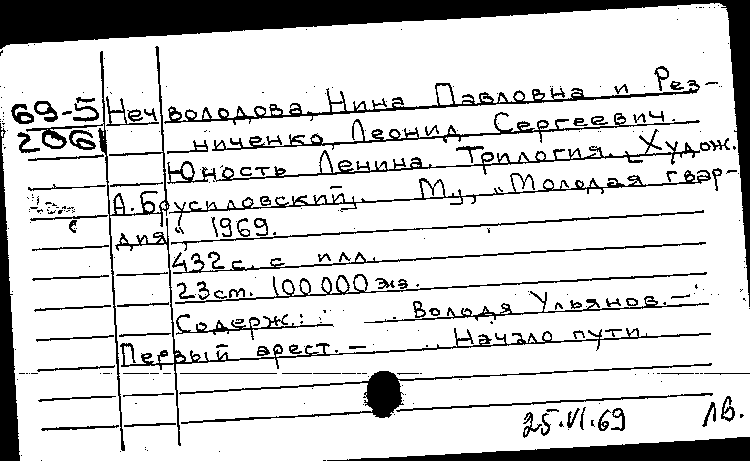 69-5 Нечволодова, Нина Павловна и Рез-
2061 ниченко, Леонид Сергеевич.
Юность Ленина. Трилогия. [Худож.
А. Брусиловский]. М., „Молодая гвар-
дия“, 1969.
432 с. с илл.
23 см. 100 000 экз.
Содерж.: Володя Ульянов. —
Первый арест. — Начало пути.
25.VI.69 ЛВ.